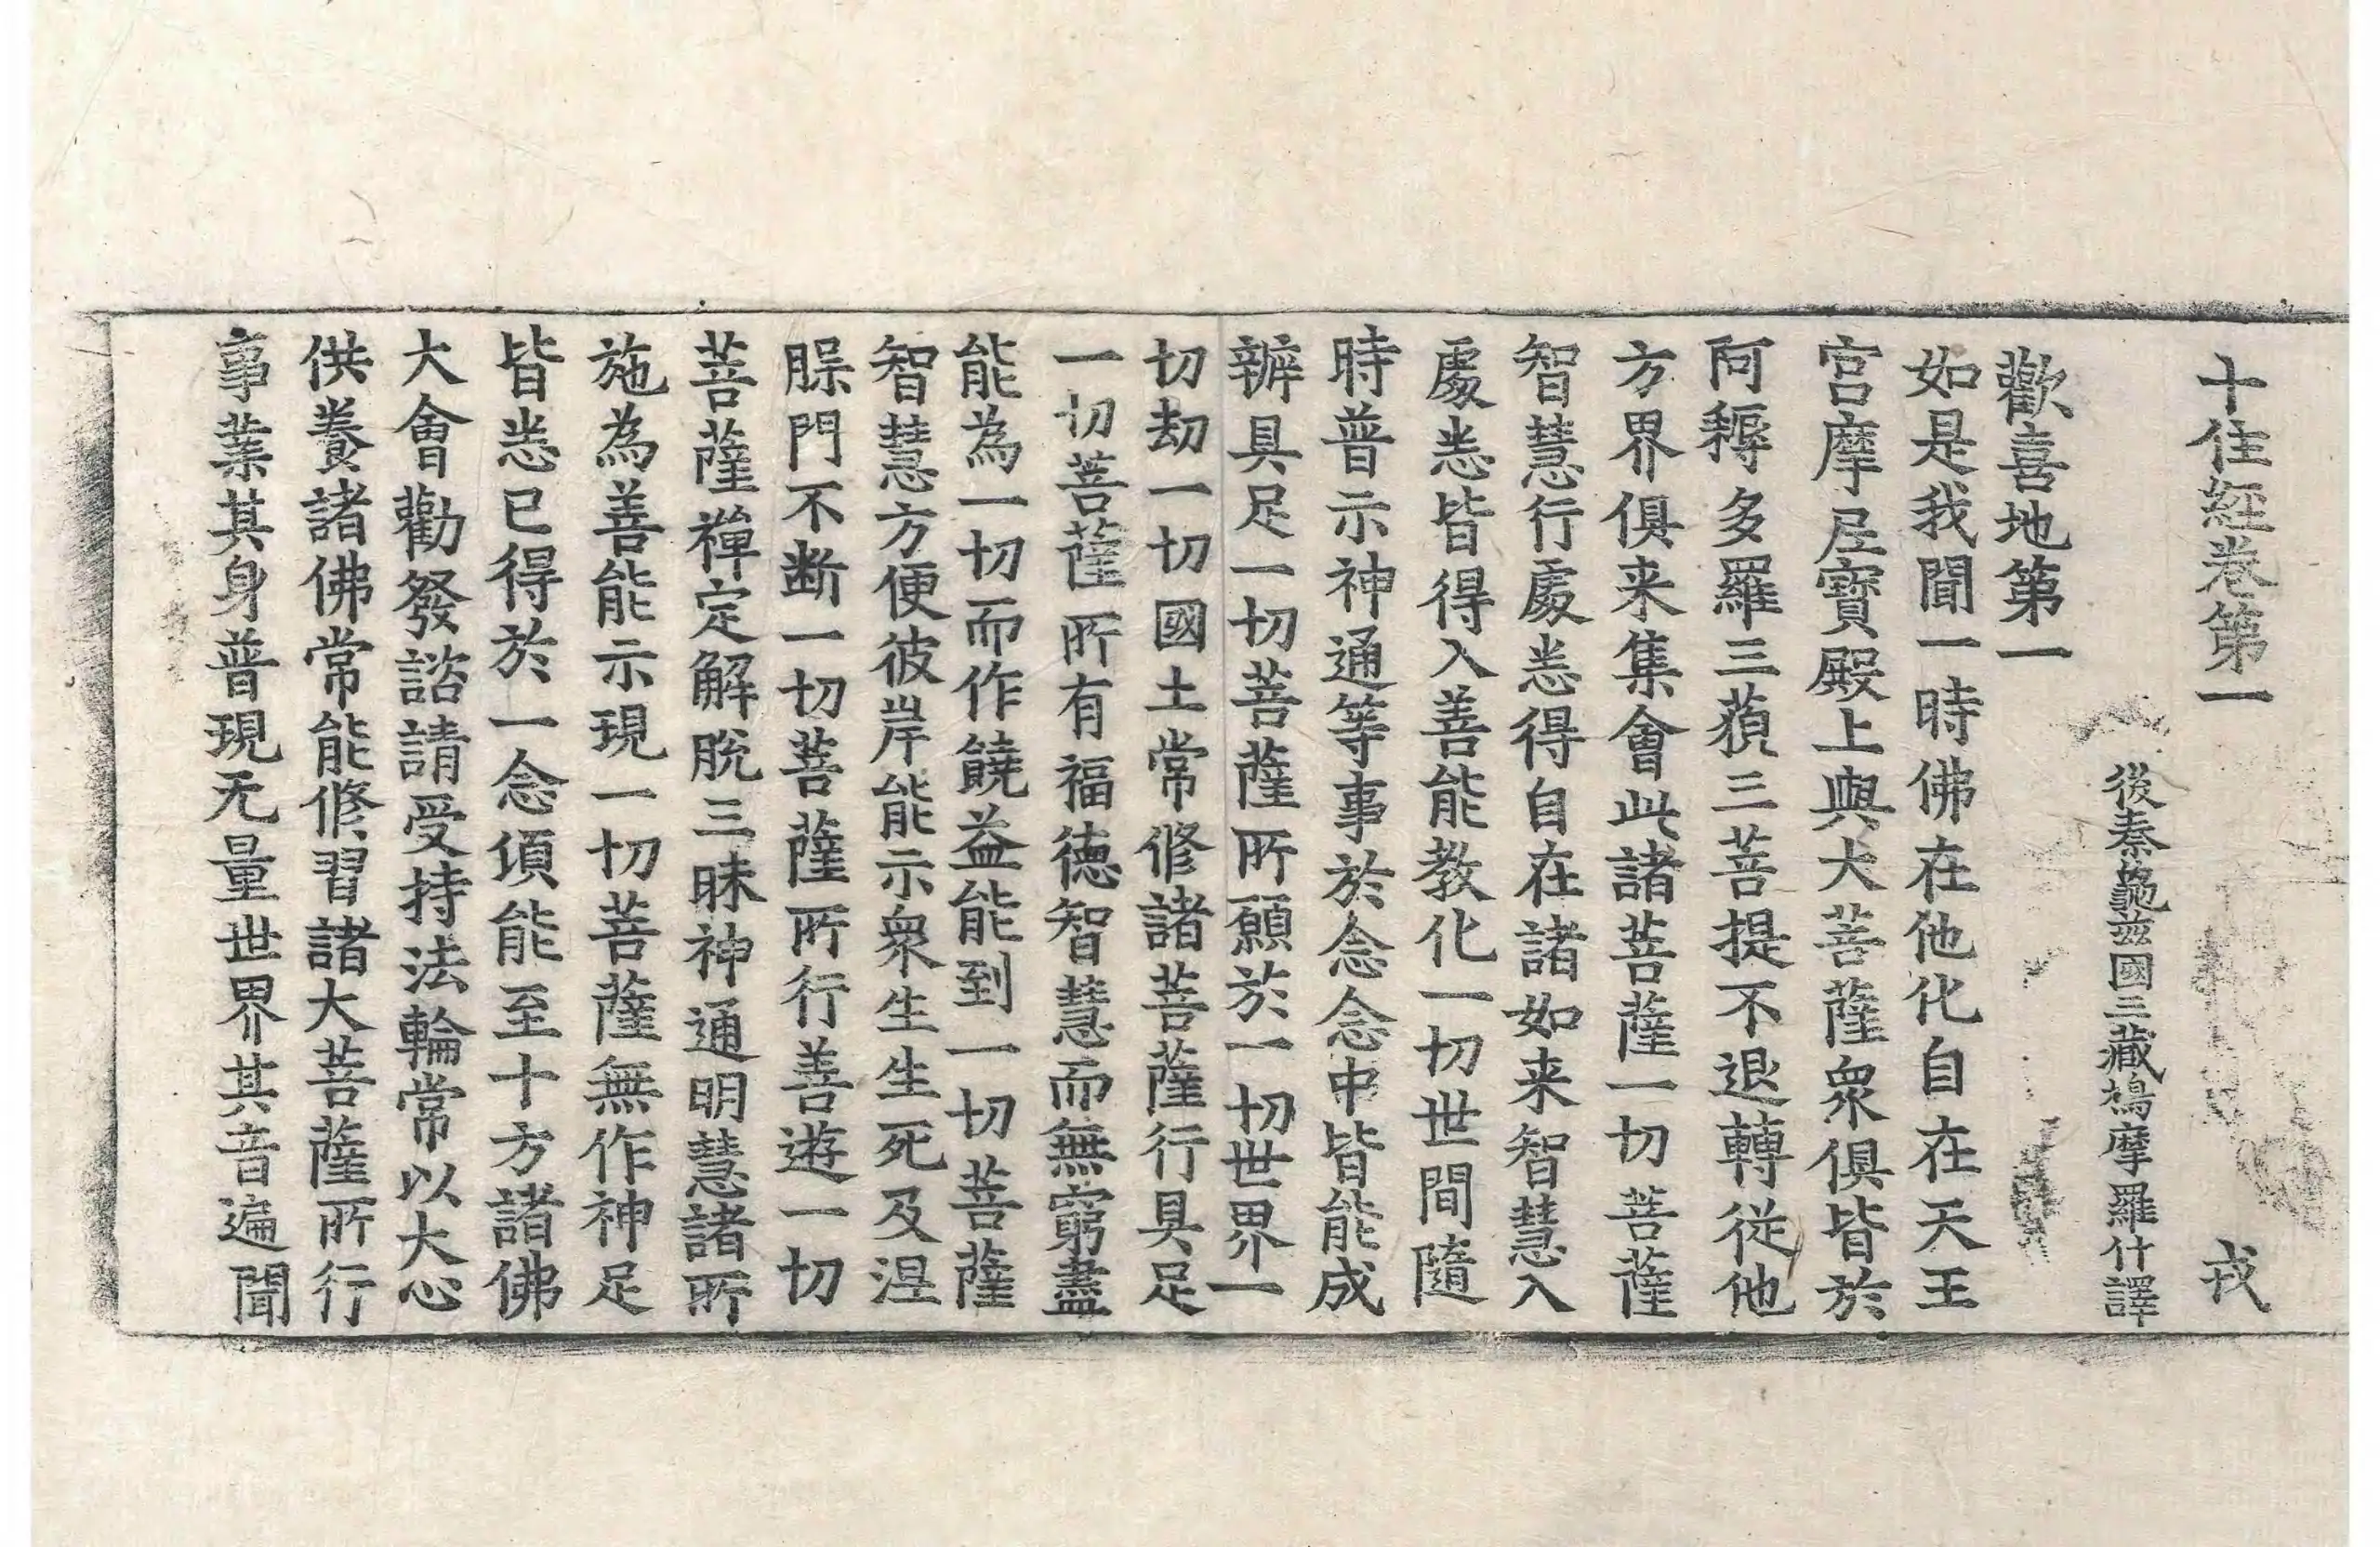 十住經卷第一 戎
後秦龜茲國三藏鳩摩羅什譯
歡喜地第一
如是我聞一時佛在他化自在天王
宮摩尼寶殿上與大菩薩衆俱皆於
阿耨多羅三藐三菩提不退轉從他
方界俱来集會此諸菩薩一切菩薩
智慧行處悉得自在諸如来智慧入
處悉皆得入善能教化一切世間隨
時普示神通等事於念念中皆能成
辦具足一切菩薩所願於一切世界一
切劫一切國土常修諸菩薩行具足
一切菩薩所有福德智慧而無窮盡
能為一切而作饒益能到一切菩薩
智慧方便彼岸能示衆生生死及涅
脲門不断一切菩薩所行善遊一切
菩薩禪定解脫三昧神通明慧諸所
施為善能示現一切菩薩無作神足
皆悉已得於一念頃能至十方諸佛
大會勸發諮請受持法輪常以大心
供養諸佛常能修習諸大菩薩所行
事業其身普現无量世界其音遍聞